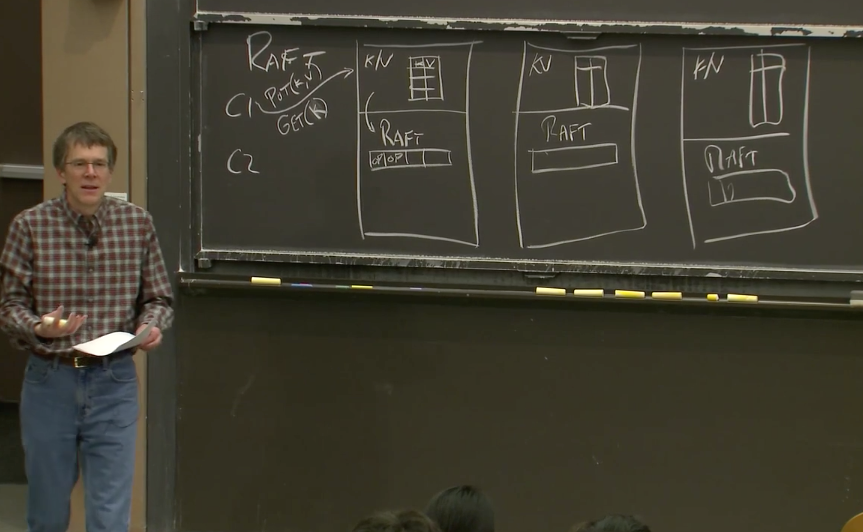 RAFT
C1
PUT(K,V)
GET(K)
C2
KV
KV
RAFT
OP OP
KV
RAFT
KV
RAFT